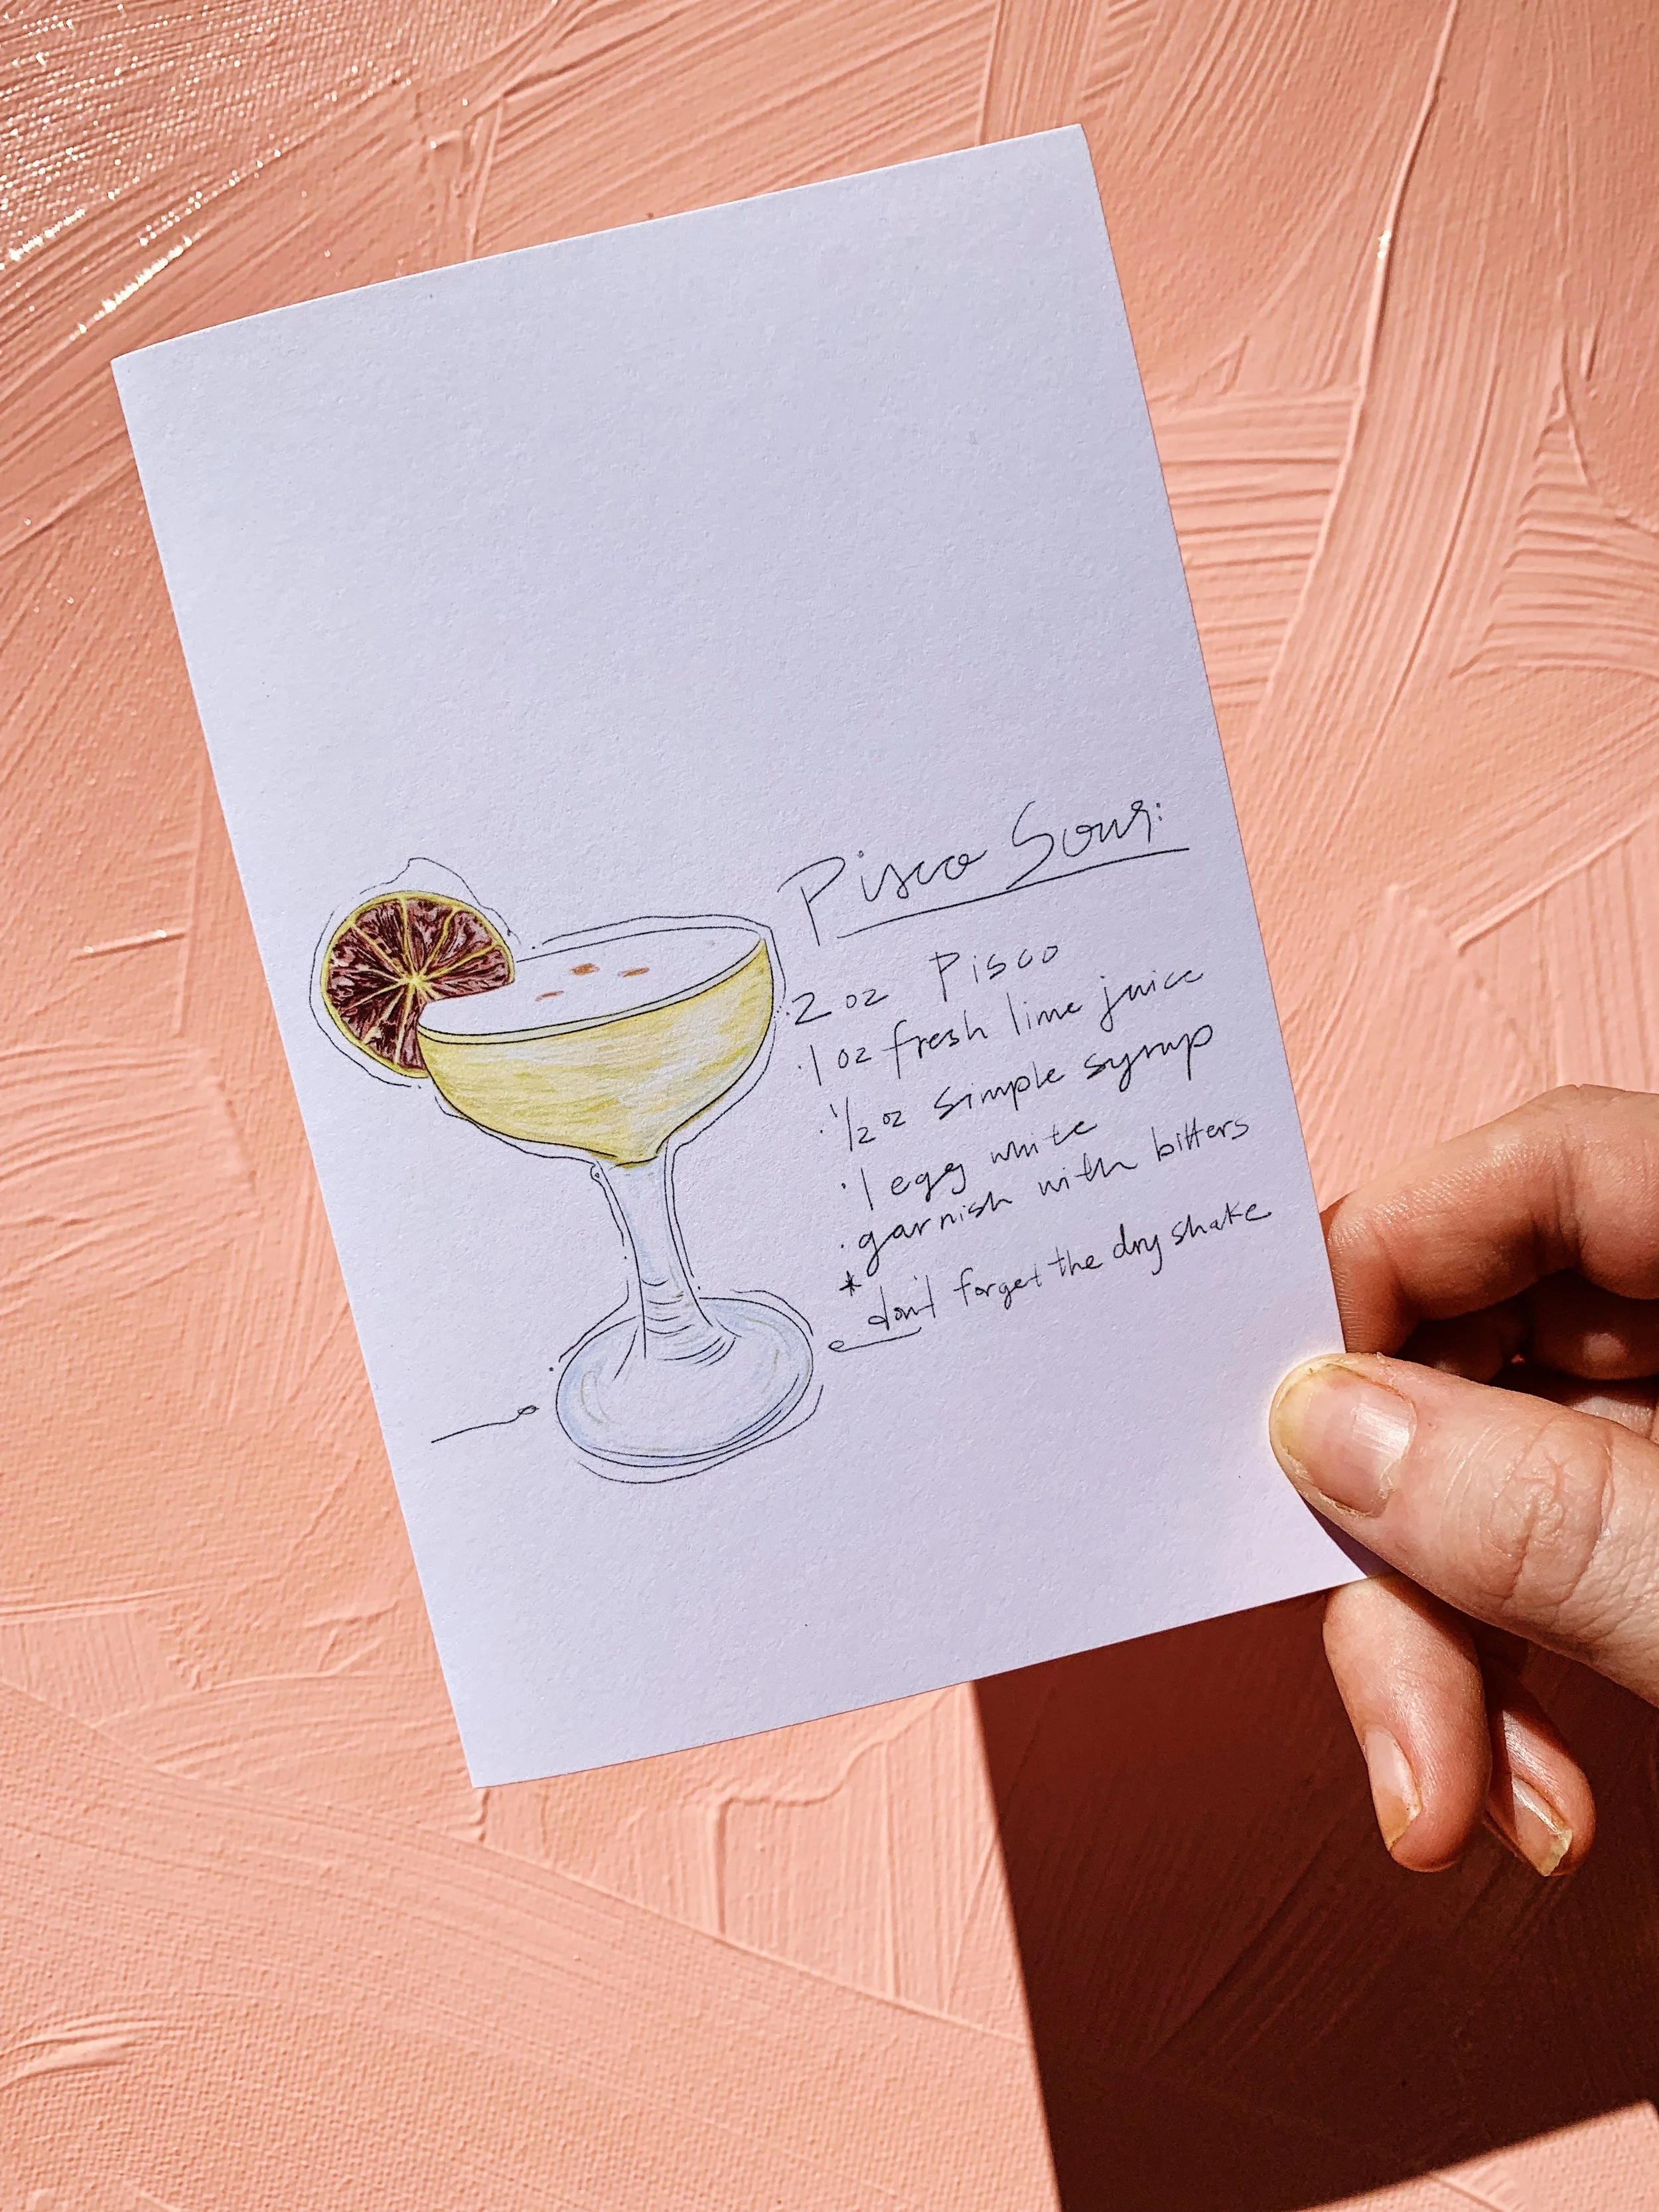 Pisco Sour:
·2 oz Pisco
·1 oz fresh lime juice
·1/2 oz simple syrup
·1 egg white
·garnish with bitters
* don't forget the dry shake